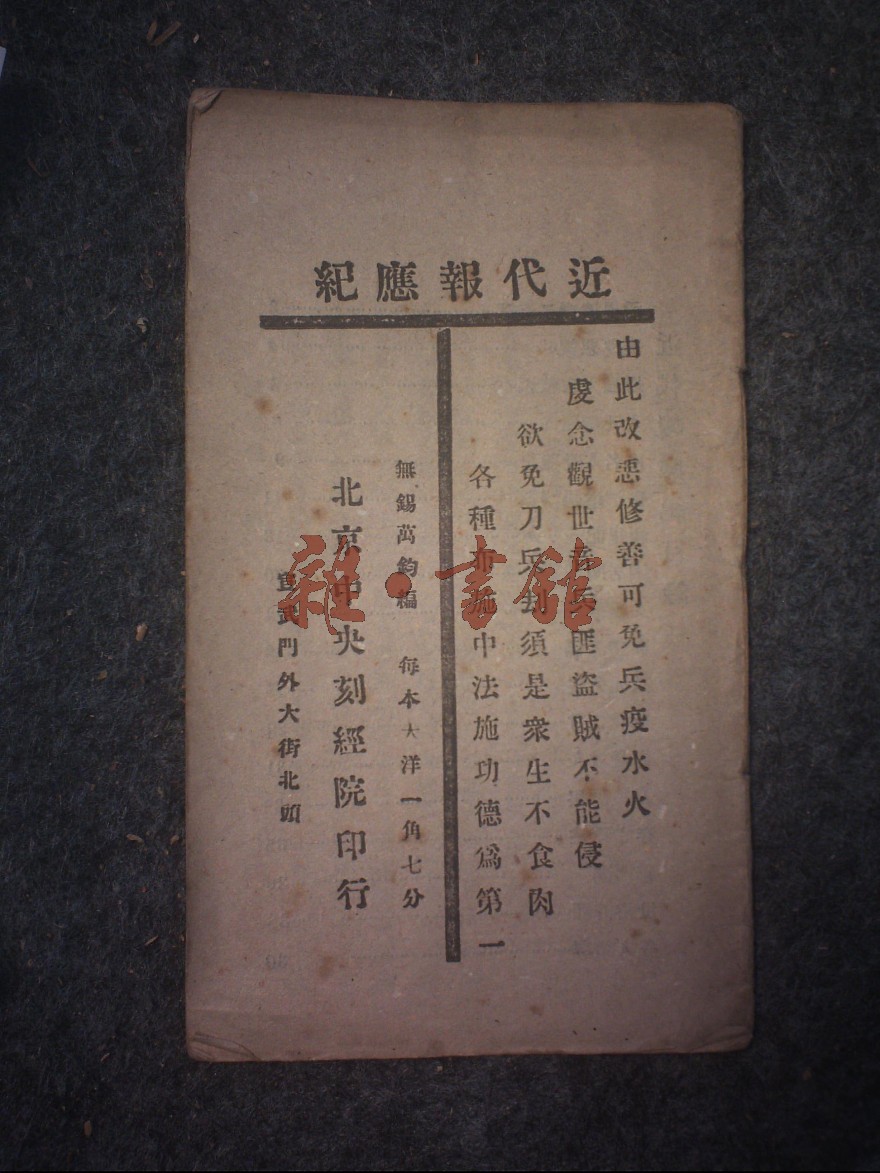 近代報應紀
由此改惡修善可免兵疫水火
虔念觀世音兵匪盜賊不能侵
欲免刀兵刧須是衆生不食肉
各種布施中法施功德爲第一
無錫萬鈞編　每本大洋一角七分
北京中央刻經院印行
宣武門外大街北頭
雜·書館